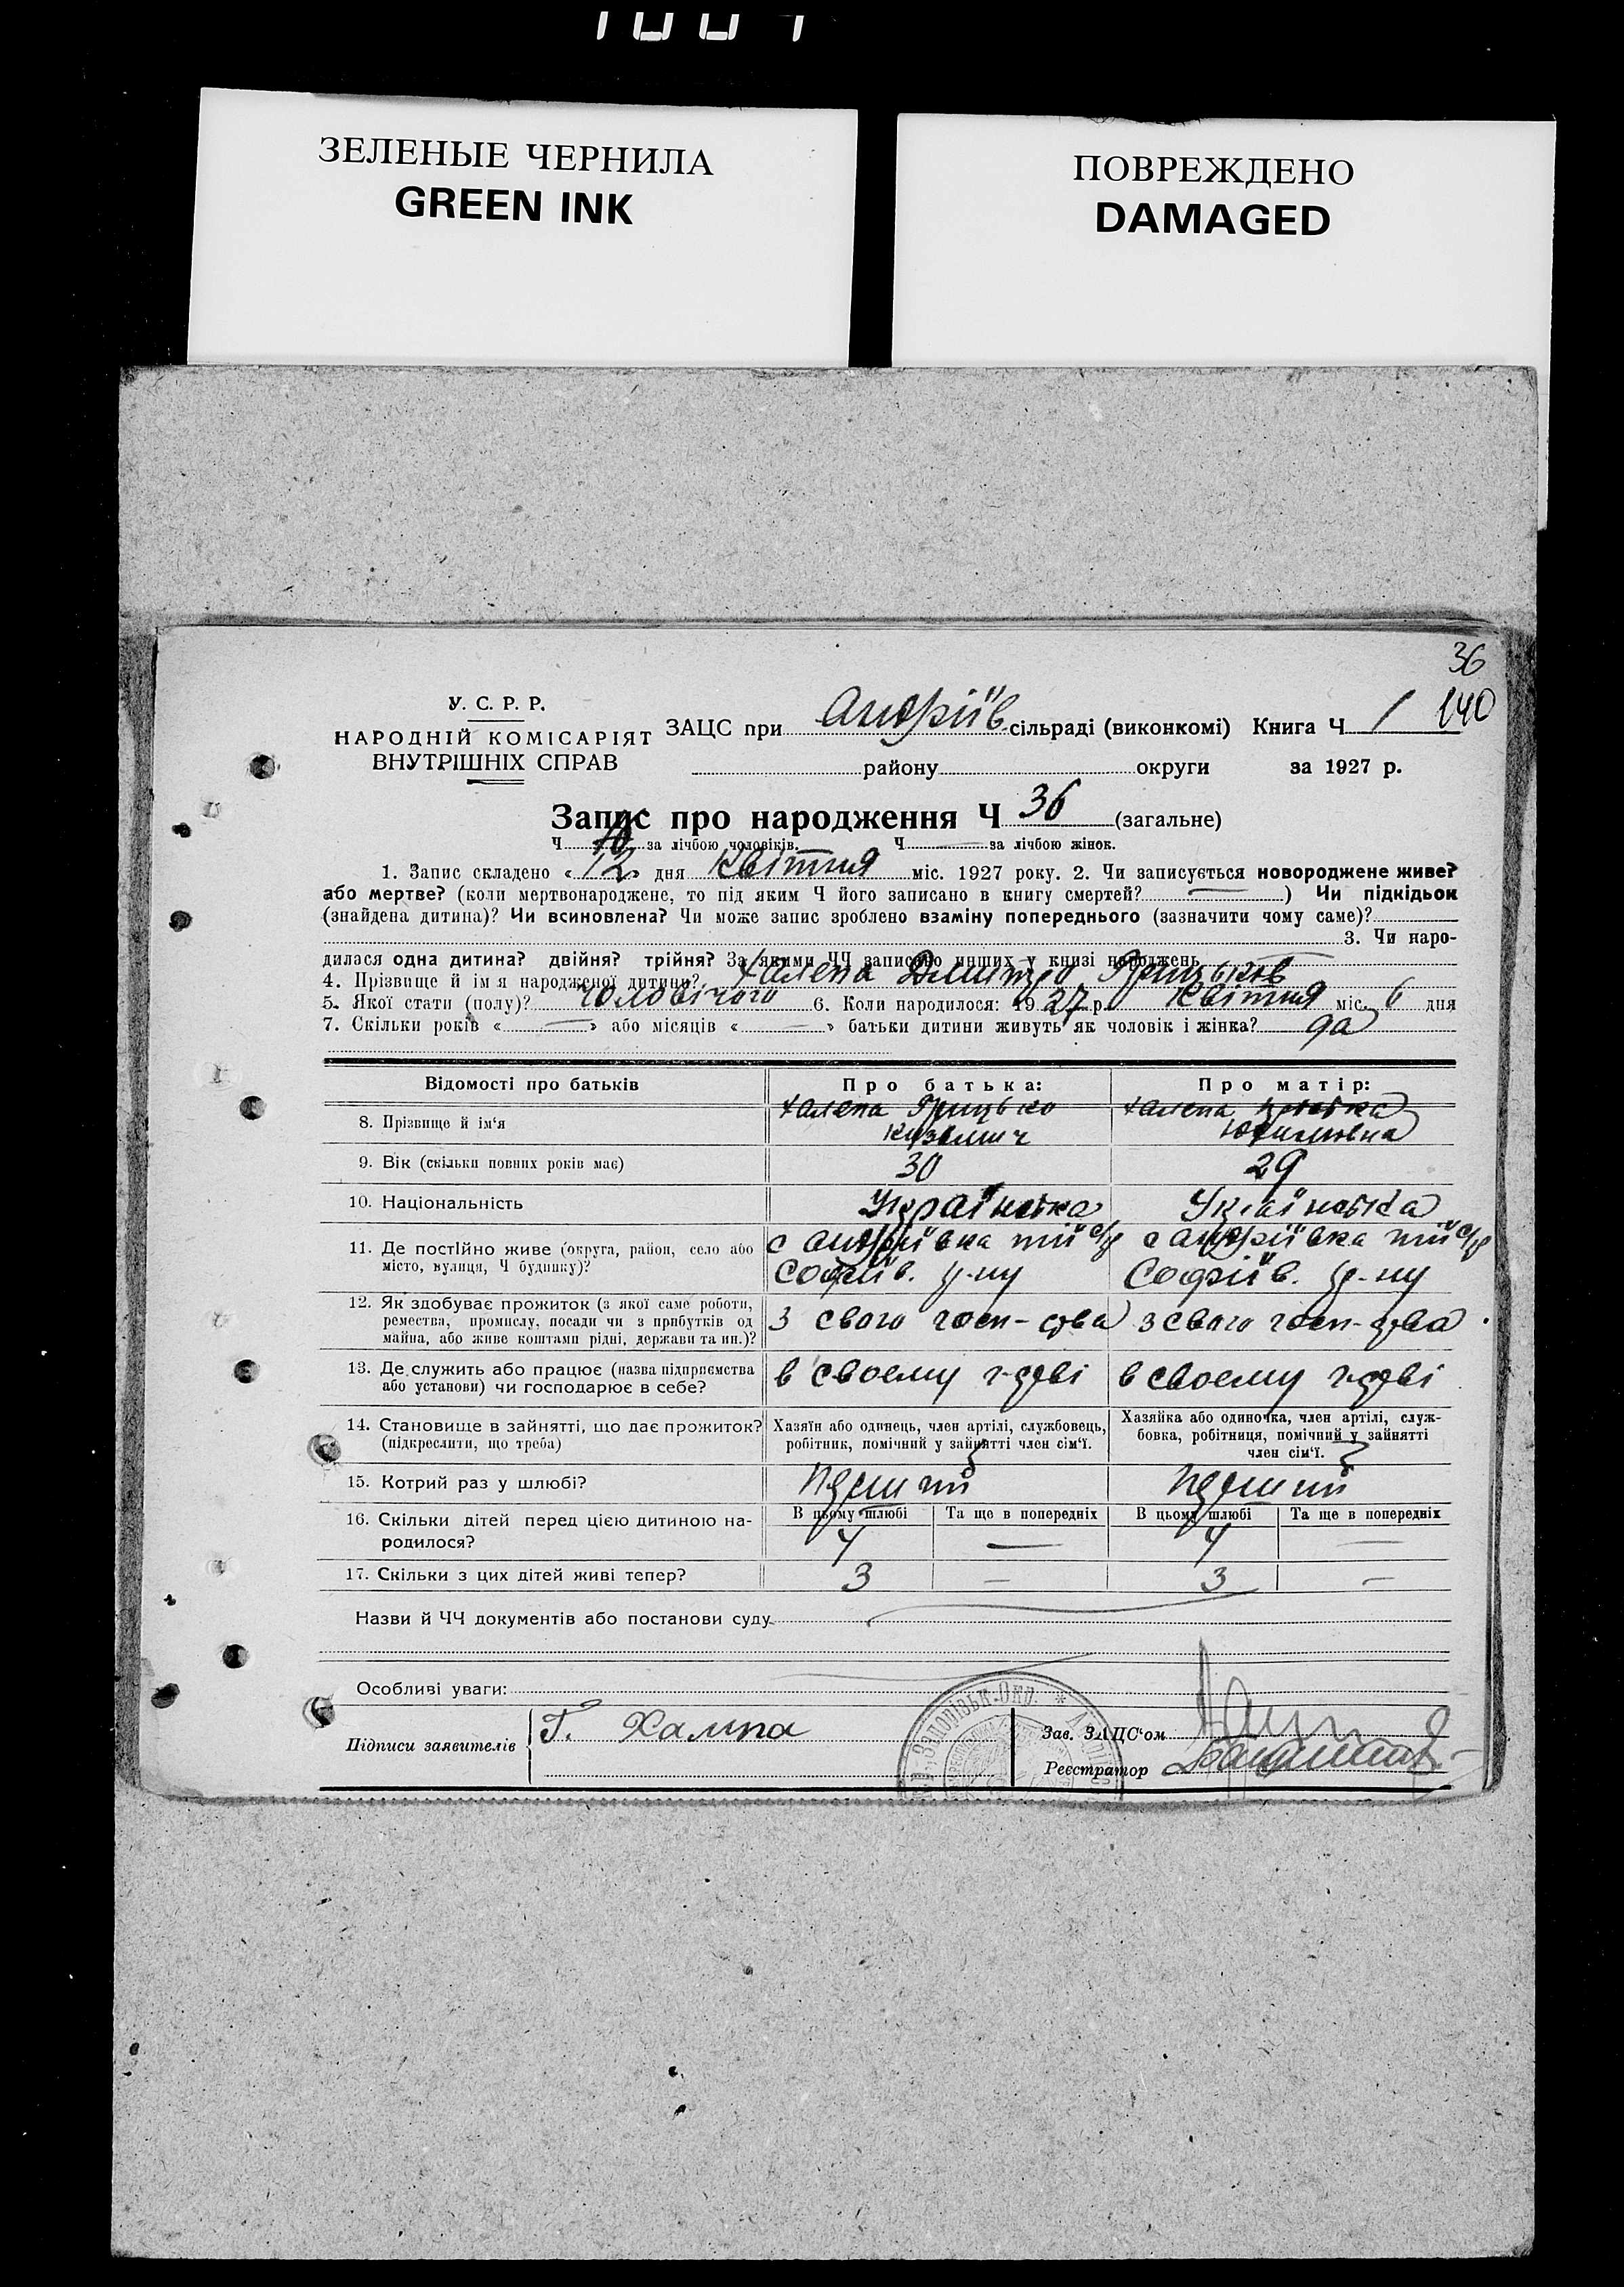 ЗЕЛЕНЫЕ ЧЕРНИЛА
GREEN INK
ПОВРЕЖДЕНО
DAMAGED
36
140
У. С. Р. Р.
НАРОДНІЙ КОМІСАРІЯТ
ВНУТРІШНІХ СПРАВ
ЗАЦС при Андріїв. сільраді (виконкомі) Книга Ч 1
району округи за 1927 р.
Запис про народження Ч 36 (загальне)
Ч за лічбою чоловіків. Ч — за лічбою жінок.
1. Запис складено « 12 » дня Квітня міс. 1927 року. 2. Чи записується новороджене живе?
або мертве? (коли мертвонароджене, то під яким Ч його записано в книгу смертей? — ) Чи підкідьок
(знайдена дитина)? Чи всиновлена? Чи може запис зроблено взаміну попереднього (зазначити чому саме)?
3. Чи наро-
дилася одна дитина? двійня? трійня? За якими ЧЧ записано инших у книзі народжень —
4. Прізвище й ім я народженої дитини? Халепа Дмитро Грицьков
5. Якої стати (полу)? чоловічого 6. Коли народилося: 1927 р. Квітня міс. 6 дня
7. Скільки років « — » або місяців « — » батьки дитини живуть як чоловік і жінка? да
Відомості про батьків Про батька: Про матір:
8. Прізвище й ім'я Халепа Грицько Халепа
Кузьмич Юхимовна
9. Вік (скільки повних років має) 30 29
10. Національність Українська Українська
11. Де постІйно живе (округа, район, село або с Андріївка тій с/р с Андріївка тій с/р
місто, вулиця, Ч будинку)? Софіїв. р-ну Софіїв. р-ну
12. Як здобуває прожиток (з якої саме роботи,
ремества, промислу, посади чи з прибутків од з свого госп-дтва з свого госп-дтва
майна, або живе коштами рідні, держави та ин.)?
13. Де служить або працює (назва підприємства в своему г-дтві в своему г-дтві
або установи) чи господарює в себе?
14. Становище в зайнятті, що дає прожиток? Хазяїн або одинець, член артілі, службовець, Хазяйка або одиночка, член артілі, служ-
(підкреслити, що треба) робітник, помічний у зайнятті член сім'ї. бовка, робітниця, помічний у зайнятті
член сім'ї.
15. Котрий раз у шлюбі? Перший Перший
16. Скільки дітей перед цією дитиною на- В цьому шлюбі Та ще в попередніх В цьому шлюбі Та ще в попередніх
родилося? 4 — 4 —
17. Скільки з цих дітей живі тепер? 3 — 3 —
Назви й ЧЧ документів або постанови суду
Особливі уваги:
Підписи заявителів Г. Халипа
Зав. ЗАЦС'ом
Реєстратор